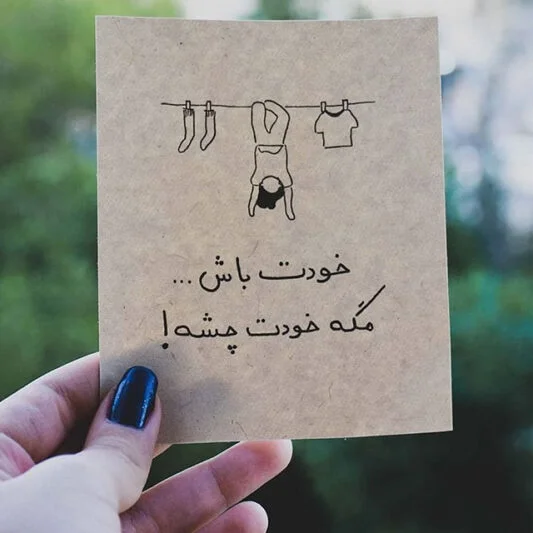 خودت باش...
مگه خودت چشه!